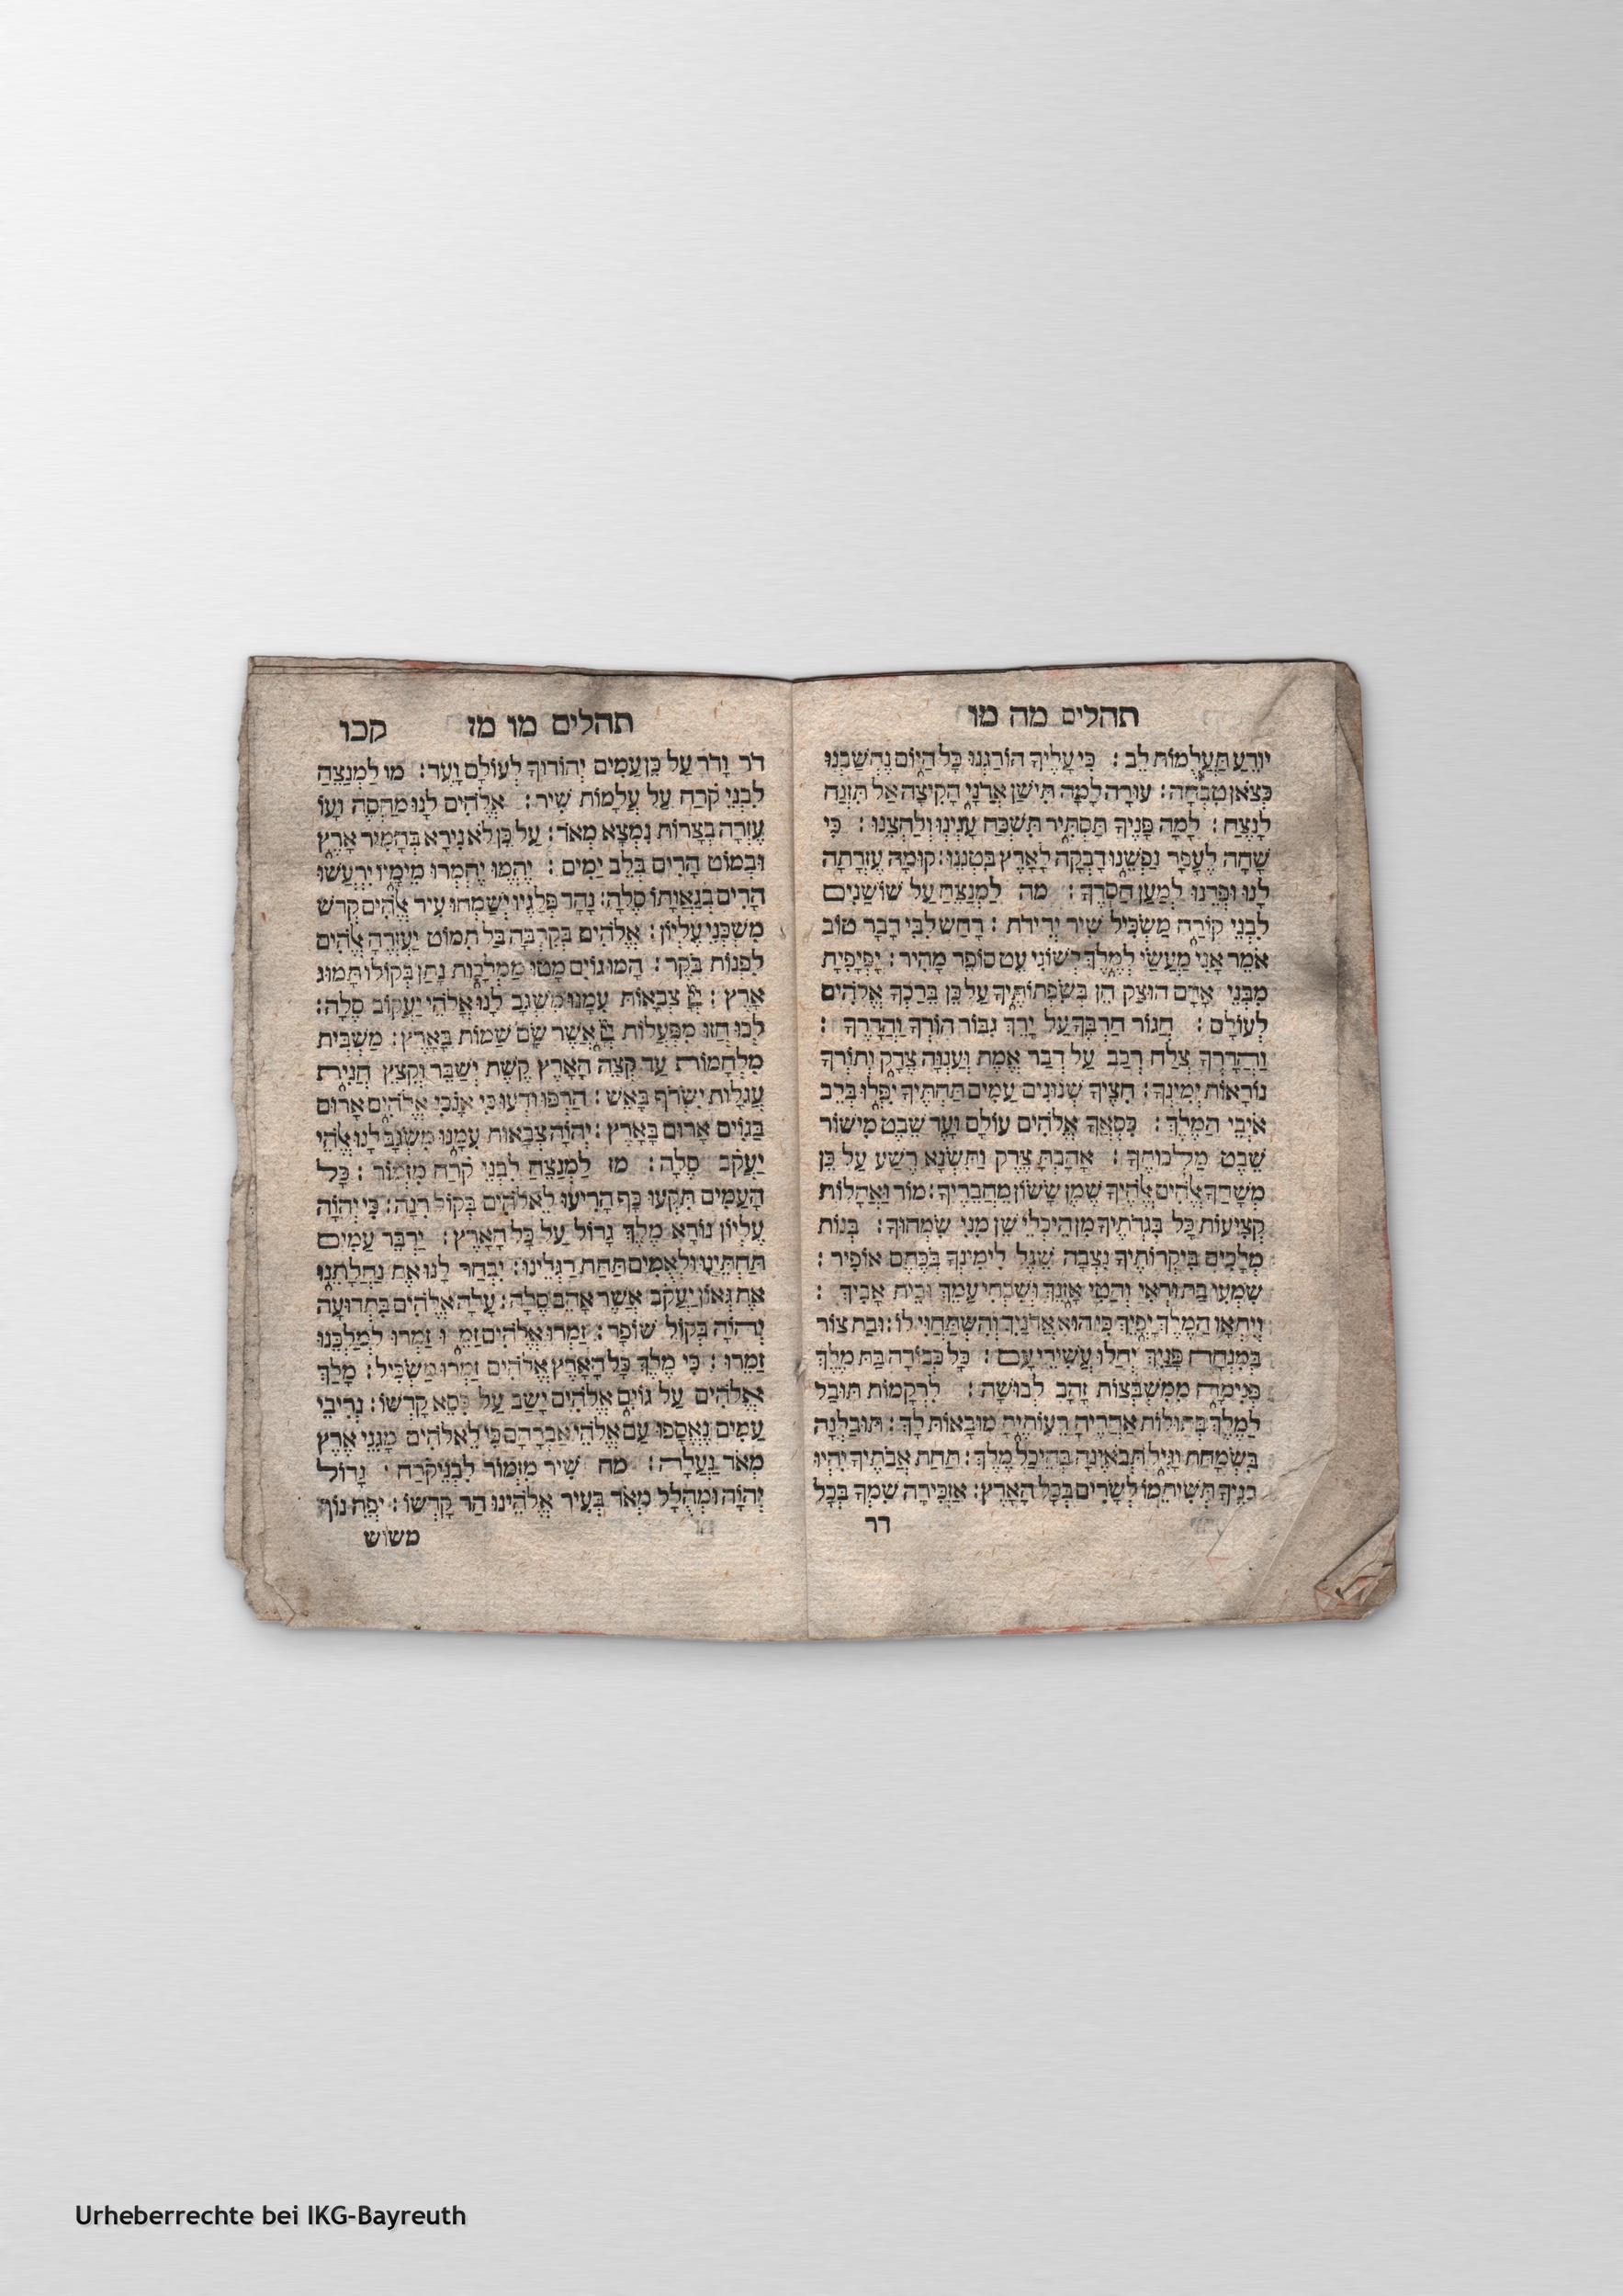 תהלים מה מו
יוֹדֵעַ תַּעֲלֻמוֹת לֵב : כִּי עָלֶיךָ הוֹרַגְנוּ כָּל הַיּוֹם נֶחְשַׁבְנוּ
כְּצֹאן טִבְחָה : עוּרָה לָמָּה תִישַׁן אֲדֹנָי הָקִיצָה אַל תִּזְנַח
לָנֶצַח : לָמָּה פָנֶיךָ תַסְתִּיר תִּשְׁכַּח עָנְיֵנוּ וְלַחֲצֵנוּ : כִּי
שָׁחָה לֶעָפָר נַפְשֵׁנוּ דָּבְקָה לָאָרֶץ בִּטְנֵנוּ : קוּמָה עֶזְרָתָה
לָּנוּ וּפְדֵנוּ לְמַעַן חַסְדֶּךָ : מה לַמְנַצֵּחַ עַל שׁוֹשַׁנִּים
לִבְנֵי קוֹרַח מַשְׂכִּיל שִׁיר יְדִידֹת : רָחַשׁ לִבִּי דָּבָר טוֹב
אֹמֵר אָנִי מַעֲשַׂי לְמֶלֶךְ לְשׁוֹנִי עֵט סוֹפֵר מָהִיר : יָפְיָפִיתָ
מִבְּנֵי אָדָם הוּצַק חֵן בְּשִׂפְתוֹתֶיךָ עַל כֵּן בֵּרַכְךָ אֱלֹהִים
לְעוֹלָם : חֲגוֹר חַרְבְּךָ עַל יָרֵךְ גִּבּוֹר הוֹדְךָ וַהֲדָרֶךָ :
וַהֲדָרְךָ צְלַח רְכַב עַל דְּבַר אֱמֶת וְעַנְוָה צֶדֶק וְתוֹרְךָ
נוֹרָאוֹת יְמִינֶךָ : חִצֶּיךָ שְׁנוּנִים עַמִּים תַּחְתֶּיךָ יִפְּלוּ בְּלֵב
אוֹיְבֵי הַמֶּלֶךְ : כִּסְאֲךָ אֱלֹהִים עוֹלָם וָעֶד שֵׁבֶט מִישׁוֹר
שֵׁבֶט מַלְכוּתֶךָ : אָהַבְתָּ צֶּדֶק וַתִּשְׂנָא רֶשַׁע עַל כֵּן
מְשָׁחֲךָ אֱלֹהִים אֱלֹהֶיךָ שֶׁמֶן שָׂשׂוֹן מֵחֲבֵרֶיךָ : מוֹר וַאֲהָלוֹת
קְצִיעוֹת כָּל בִּגְדֹתֶיךָ מִן הֵיכְלֵי שֵׁן מִנִּי שִׂמְּחוּךָ : בְּנוֹת
מְלָכִים בִּיקְּרוֹתֶיךָ נִצְּבָה שֵׁגַל לִימִינְךָ בְּכֶתֶם אוֹפִיר :
שִׁמְעִי בַת וּרְאִי וְהַטִּי אָזְנֵךְ וְשִׁכְחִי עַמֵּךְ וּבֵית אָבִיךְ :
וְיִתְאָו הַמֶּלֶךְ יָפְיֵךְ כִּי הוּא אֲדֹנַיִךְ וְהִשְׁתַּחֲוִי לוֹ : וּבַת צוֹר
בְּמִנְחָה פָּנַיִךְ יְחַלּוּ עֲשִׁירֵי עָם : כָּל כְּבוּדָּה בַת מֶלֶךְ
פְּנִימָה מִמִּשְׁבְּצוֹת זָהָב לְבוּשָׁהּ : לִרְקָמוֹת תּוּבַל
לַמֶּלֶךְ בְּתוּלוֹת אַחֲרֶיהָ רֵעוֹתֶיהָ מוּבָאוֹת לָךְ : תּוּבַלְנָה
בִּשְׂמָחֹת וָגִיל תְּבֹאֶינָה בְּהֵיכַל מֶלֶךְ : תַּחַת אֲבֹתֶיךָ יִהְיוּ
בָנֶיךָ תְּשִׁיתֵמוֹ לְשָׂרִים בְּכָל הָאָרֶץ : אַזְכִּירָה שִׁמְךָ בְּכָל
דר
תהלים מו מז קכו
דֹּר וָדֹר עַל כֵּן עַמִּים יְהוֹדוּךָ לְעוֹלָם וָעֶד : מו לַמְנַצֵּחַ
לִבְנֵי קֹרַח עַל עֲלָמוֹת שִׁיר : אֱלֹהִים לָנוּ מַחֲסֶה וָעוֹ
עֶזְרָה בְצָרוֹת נִמְצָא מְאֹד : עַל כֵּן לֹא נִירָא בְּהָמִיר אָרֶץ
וּבְמוֹט הָרִים בְּלֵב יַמִּים : יֶהֱמוּ יֶחְמְרוּ מֵימָיו יִרְעֲשׁוּ
הָרִים בְּגַאֲוָתוֹ סֶלָה : נָהָר פְּלָגָיו יְשַׂמְּחוּ עִיר אֱלֹהִים קְדֹשׁ
מִשְׁכְּנֵי עֶלְיוֹן : אֱלֹהִים בְּקִרְבָּהּ בַּל תִּמּוֹט יַעְזְרֶהָ אֱלֹהִים
לִפְנוֹת בֹּקֶר : הָמוּ גוֹיִם מָטוּ מַמְלָכוֹת נָתַן בְּקוֹלוֹ תָּמוּג
אָרֶץ : יְיָ צְבָאוֹת עִמָּנוּ מִשְׂגָּב לָנוּ אֱלֹהֵי יַעֲקוֹב סֶלָה :
לְכוּ חֲזוּ מִפְעֲלוֹת יְיָ אֲשֶׁר שָׂם שַׁמּוֹת בָּאָרֶץ : מַשְׁבִּית
מִלְחָמוֹת עַד קְצֵה הָאָרֶץ קֶשֶׁת יְשַׁבֵּר וְקִצֵּץ חֲנִית
עֲגָלוֹת יִשְׂרֹף בָּאֵשׁ : הַרְפּוּ וּדְעוּ כִּי אָנֹכִי אֱלֹהִים אָרוּם
בַּגּוֹיִם אָרוּם בָּאָרֶץ : יְהוָֹה צְבָאוֹת עִמָּנוּ מִשְׂגָּב לָנוּ אֱלֹהֵי
יַעֲקֹב סֶלָה : מז לַמְנַצֵּחַ לִבְנֵי קֹרַח מִזְמוֹר : כָּל
הָעַמִּים תִּקְעוּ כָף הָרִיעוּ לֵאלֹהִים בְּקוֹל רִנָּה : כִּי יְהוָֹה
עֶלְיוֹן נוֹרָא מֶלֶךְ גָּדוֹל עַל כָּל הָאָרֶץ : יַדְבֵּר עַמִּים
תַּחְתֵּינוּ וּלְאֻמִּים תַּחַת רַגְלֵינוּ : יִבְחַר לָנוּ אֶת נַחֲלָתֵנוּ
אֶת גְּאוֹן יַעֲקֹב אֲשֶׁר אָהֵב סֶלָה : עָלָה אֱלֹהִים בִּתְרוּעָה
יְהוָֹה בְּקוֹל שׁוֹפָר : זַמְּרוּ אֱלֹהִים זַמֵּרוּ זַמְּרוּ לְמַלְכֵּנוּ
זַמֵּרוּ : כִּי מֶלֶךְ כָּל הָאָרֶץ אֱלֹהִים זַמְּרוּ מַשְׂכִּיל : מָלַךְ
אֱלֹהִים עַל גּוֹיִם אֱלֹהִים יָשַׁב עַל כִּסֵּא קָדְשׁוֹ : נְדִיבֵי
עַמִּים נֶאֱסָפוּ עַם אֱלֹהֵי אַבְרָהָם כִּי לֵאלֹהִים מָגִנֵּי אֶרֶץ
מְאֹד נַעֲלָה : מח שִׁיר מִזְמוֹר לִבְנֵי קֹרַח : גָּדוֹל
יְהוָֹה וּמְהֻלָּל מְאֹד בְּעִיר אֱלֹהֵינוּ הַר קָדְשׁוֹ : יְפֵה נוֹף
משוש
Urheberrechte bei IKG-Bayreuth